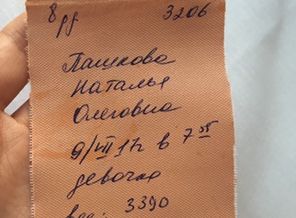 8 рд 3206
Пашкова
Наталья
Олеговна
9/VII 17г в 7 35
девочка
вес: 3390